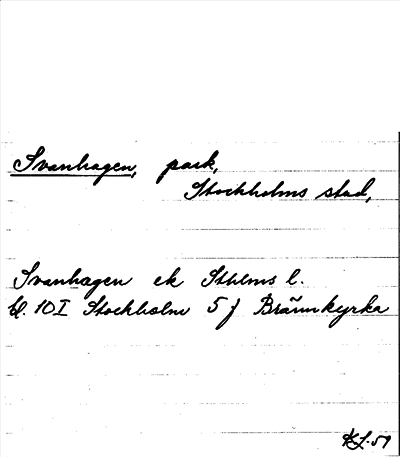 Svanhagen, park,
Stockholms stad,
Svanhagen ek Sthlms l.
bl. 10I Stockholm 5 j Brännkyrka